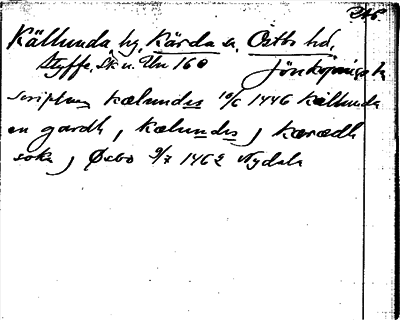 Källunda by, Kärda sn, Östbo hd,
Styffe, Sk u. Un 160 Jönköpings l
scriptum Kælundes 10/6 1446 Källunda
en gardh j Kælundes j Kærædh
sokn j Øsbo 9/7 1462 Nydala